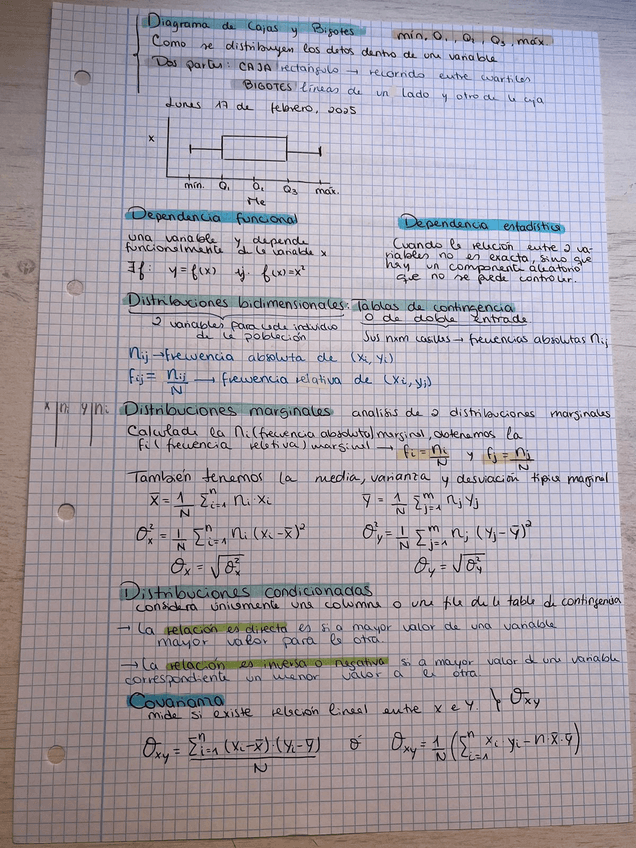 Diagrama de Cajas y Bigotes min, Q₁, Q₂, Q₃, máx.
Como se distribuyen los datos dentro de una variable
Dos partes: CAJA rectángulo → recorrido entre cuartiles
BIGOTES líneas de un lado y otro de la caja
Lunes 17 de febrero, 2025
x
mín. Q₁ Q₂ Q₃ máx.
Me
Dependencia funcional
una variable y depende
funcionalmente de la variable x
∃f: y=f(x) ej: f(x)=x²
Dependencia estadística
Cuando la relación entre 2 va-
riables no es exacta, sino que
hay un componente aleatorio
que no se puede controlar.
Distribuciones bidimensionales: Tablas de contingencia
o de doble entrada
2 variables para cada individuo
de la población
Sus nxm casillas → frecuencias absolutas nij
nij → frecuencia absoluta de (xi, yi)
fij = nij/N → frecuencia relativa de (xi, yj)
x | ni y | ni
Distribuciones marginales analisis de 2 distribuciones marginales
Calculada la ni (frecuencia absoluta) marginal, obtenemos la
fi (frecuencia relativa) marginal → fi = ni/N y fj = nj/N
También tenemos la media, varianza y desviación típica marginal
x̄ = 1/N ∑ⁿᵢ₌₁ ni·xi ȳ = 1/N ∑ᵐⱼ₌₁ nj yj
σ²x = 1/N ∑ⁿᵢ₌₁ ni (xi-x̄)² σ²y = 1/N ∑ᵐⱼ₌₁ nj (yj-ȳ)²
σx = √σ²x σy = √σ²y
Distribuciones condicionadas
considera únicamente una columna o una fila de la tabla de contingencia
→ La relación es directa es si a mayor valor de una variable
mayor valor para la otra.
→ La relación es inversa o negativa si a mayor valor de una variable
correspondiente un menor valor a la otra.
Covarianza
mide si existe relación lineal entre x e y. σxy
σxy = ∑ⁿᵢ₌₁ (xi-x̄)·(yi-ȳ)/N ó σxy = 1/N (∑ⁿᵢ₌₁ xi·yi-n·x̄·ȳ)